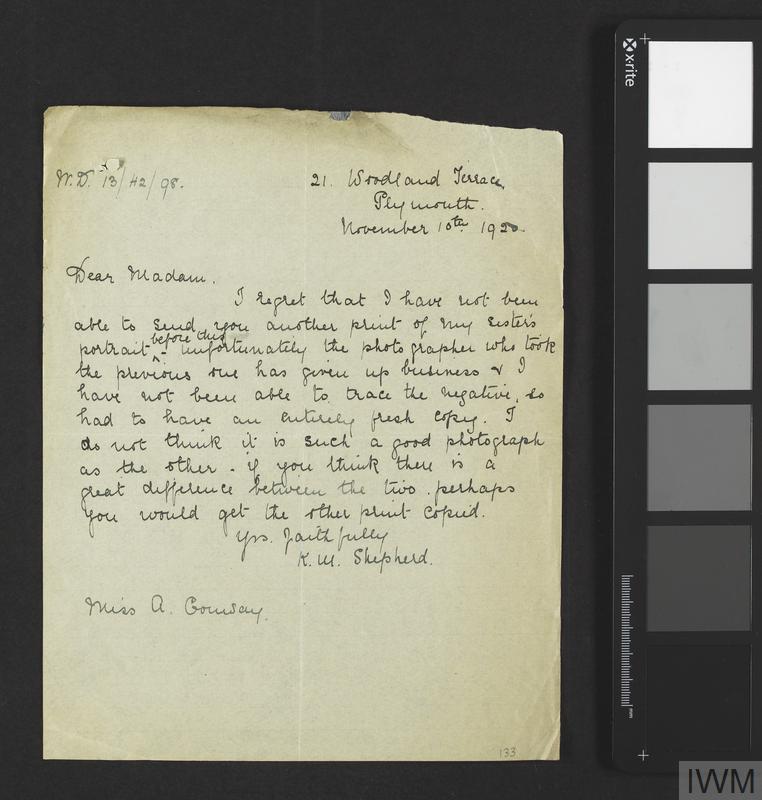 W.D. 13/42/98.
21. Woodland Terrace,
Plymouth.
November 10th 1920
Dear Madam.
I regret that I have not been
able to send you another print of my sister's
before this
portrait - unfortunately the photographer who took
the previous one has given up business & I
have not been able to trace the negative, so
had to have an entirely fresh copy. I
do not think it is such a good photograph
as the other - if you think there is a
great difference between the two. perhaps
you would get the other print copied.
Yrs. faithfully
K.M. Shepherd.
Miss A. Conway.
133
x-rite
mm
IWM